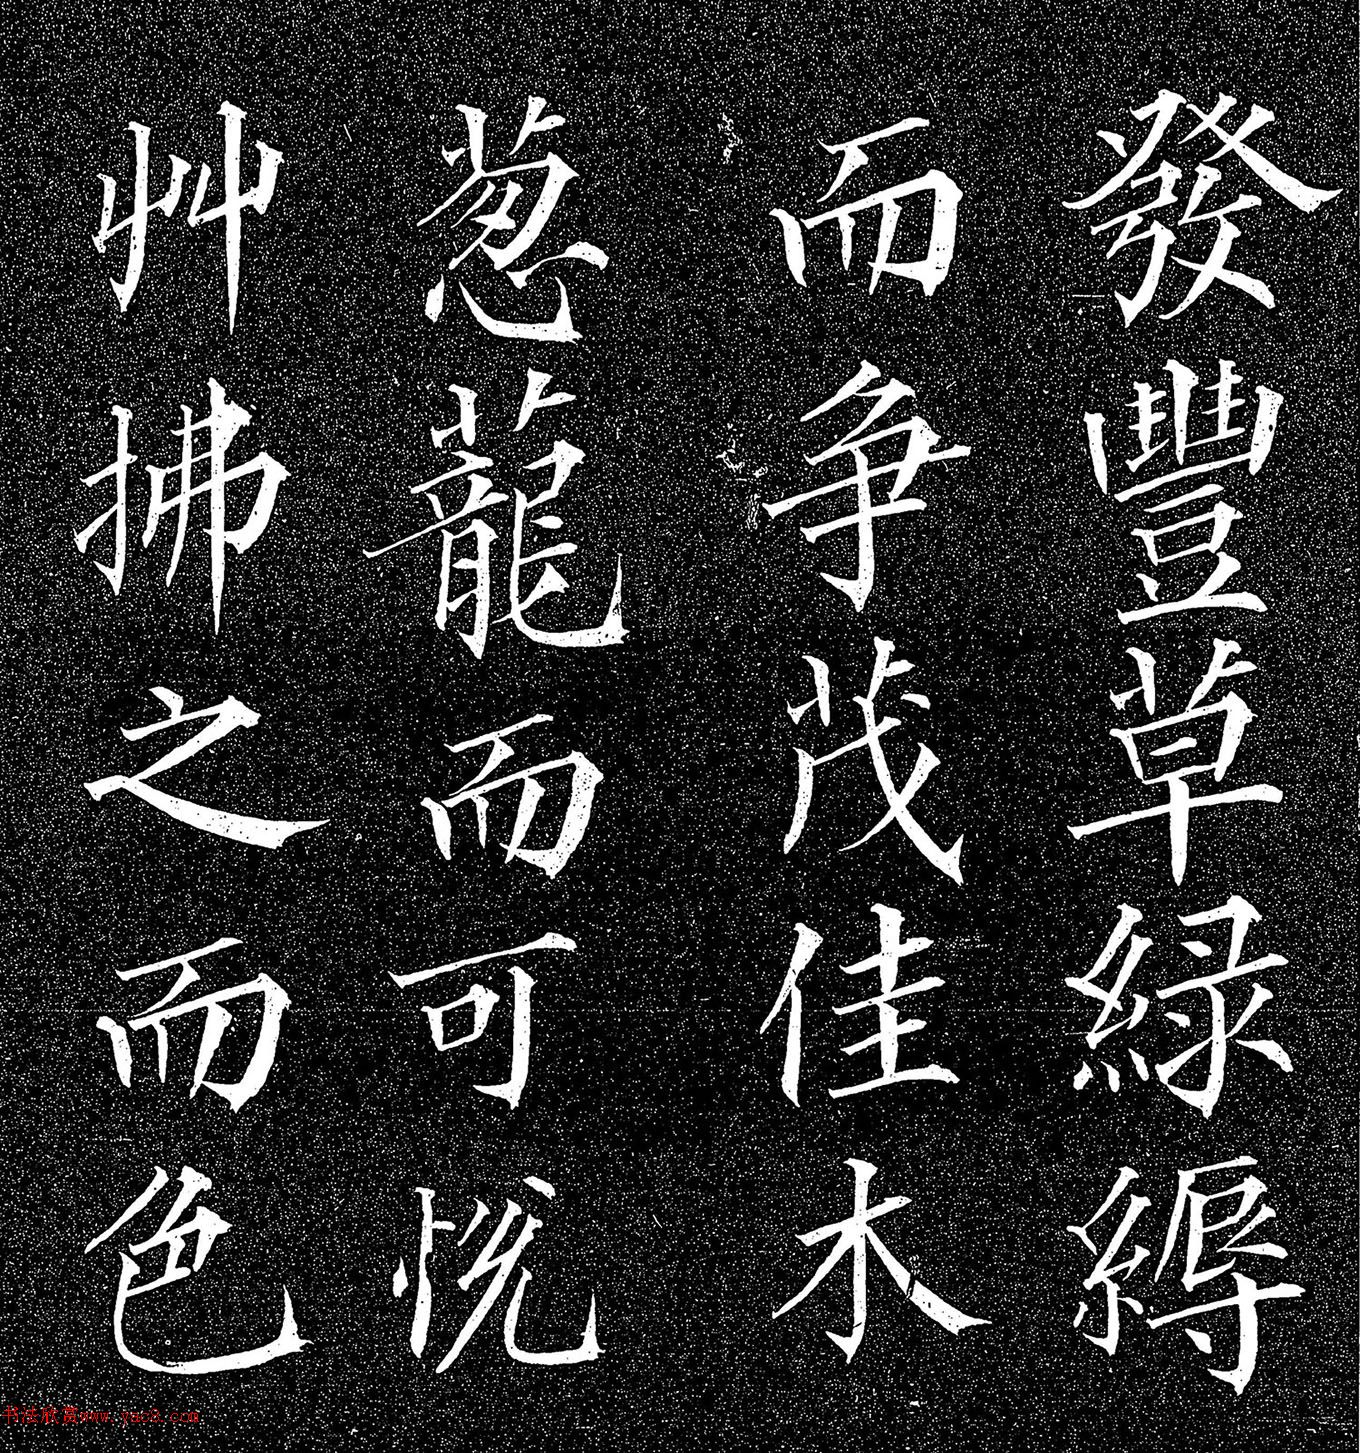 發豐草綠縟
而争茂佳木
葱蘢而可悦
艸拂之而色
书法欣赏www.yuc8.com